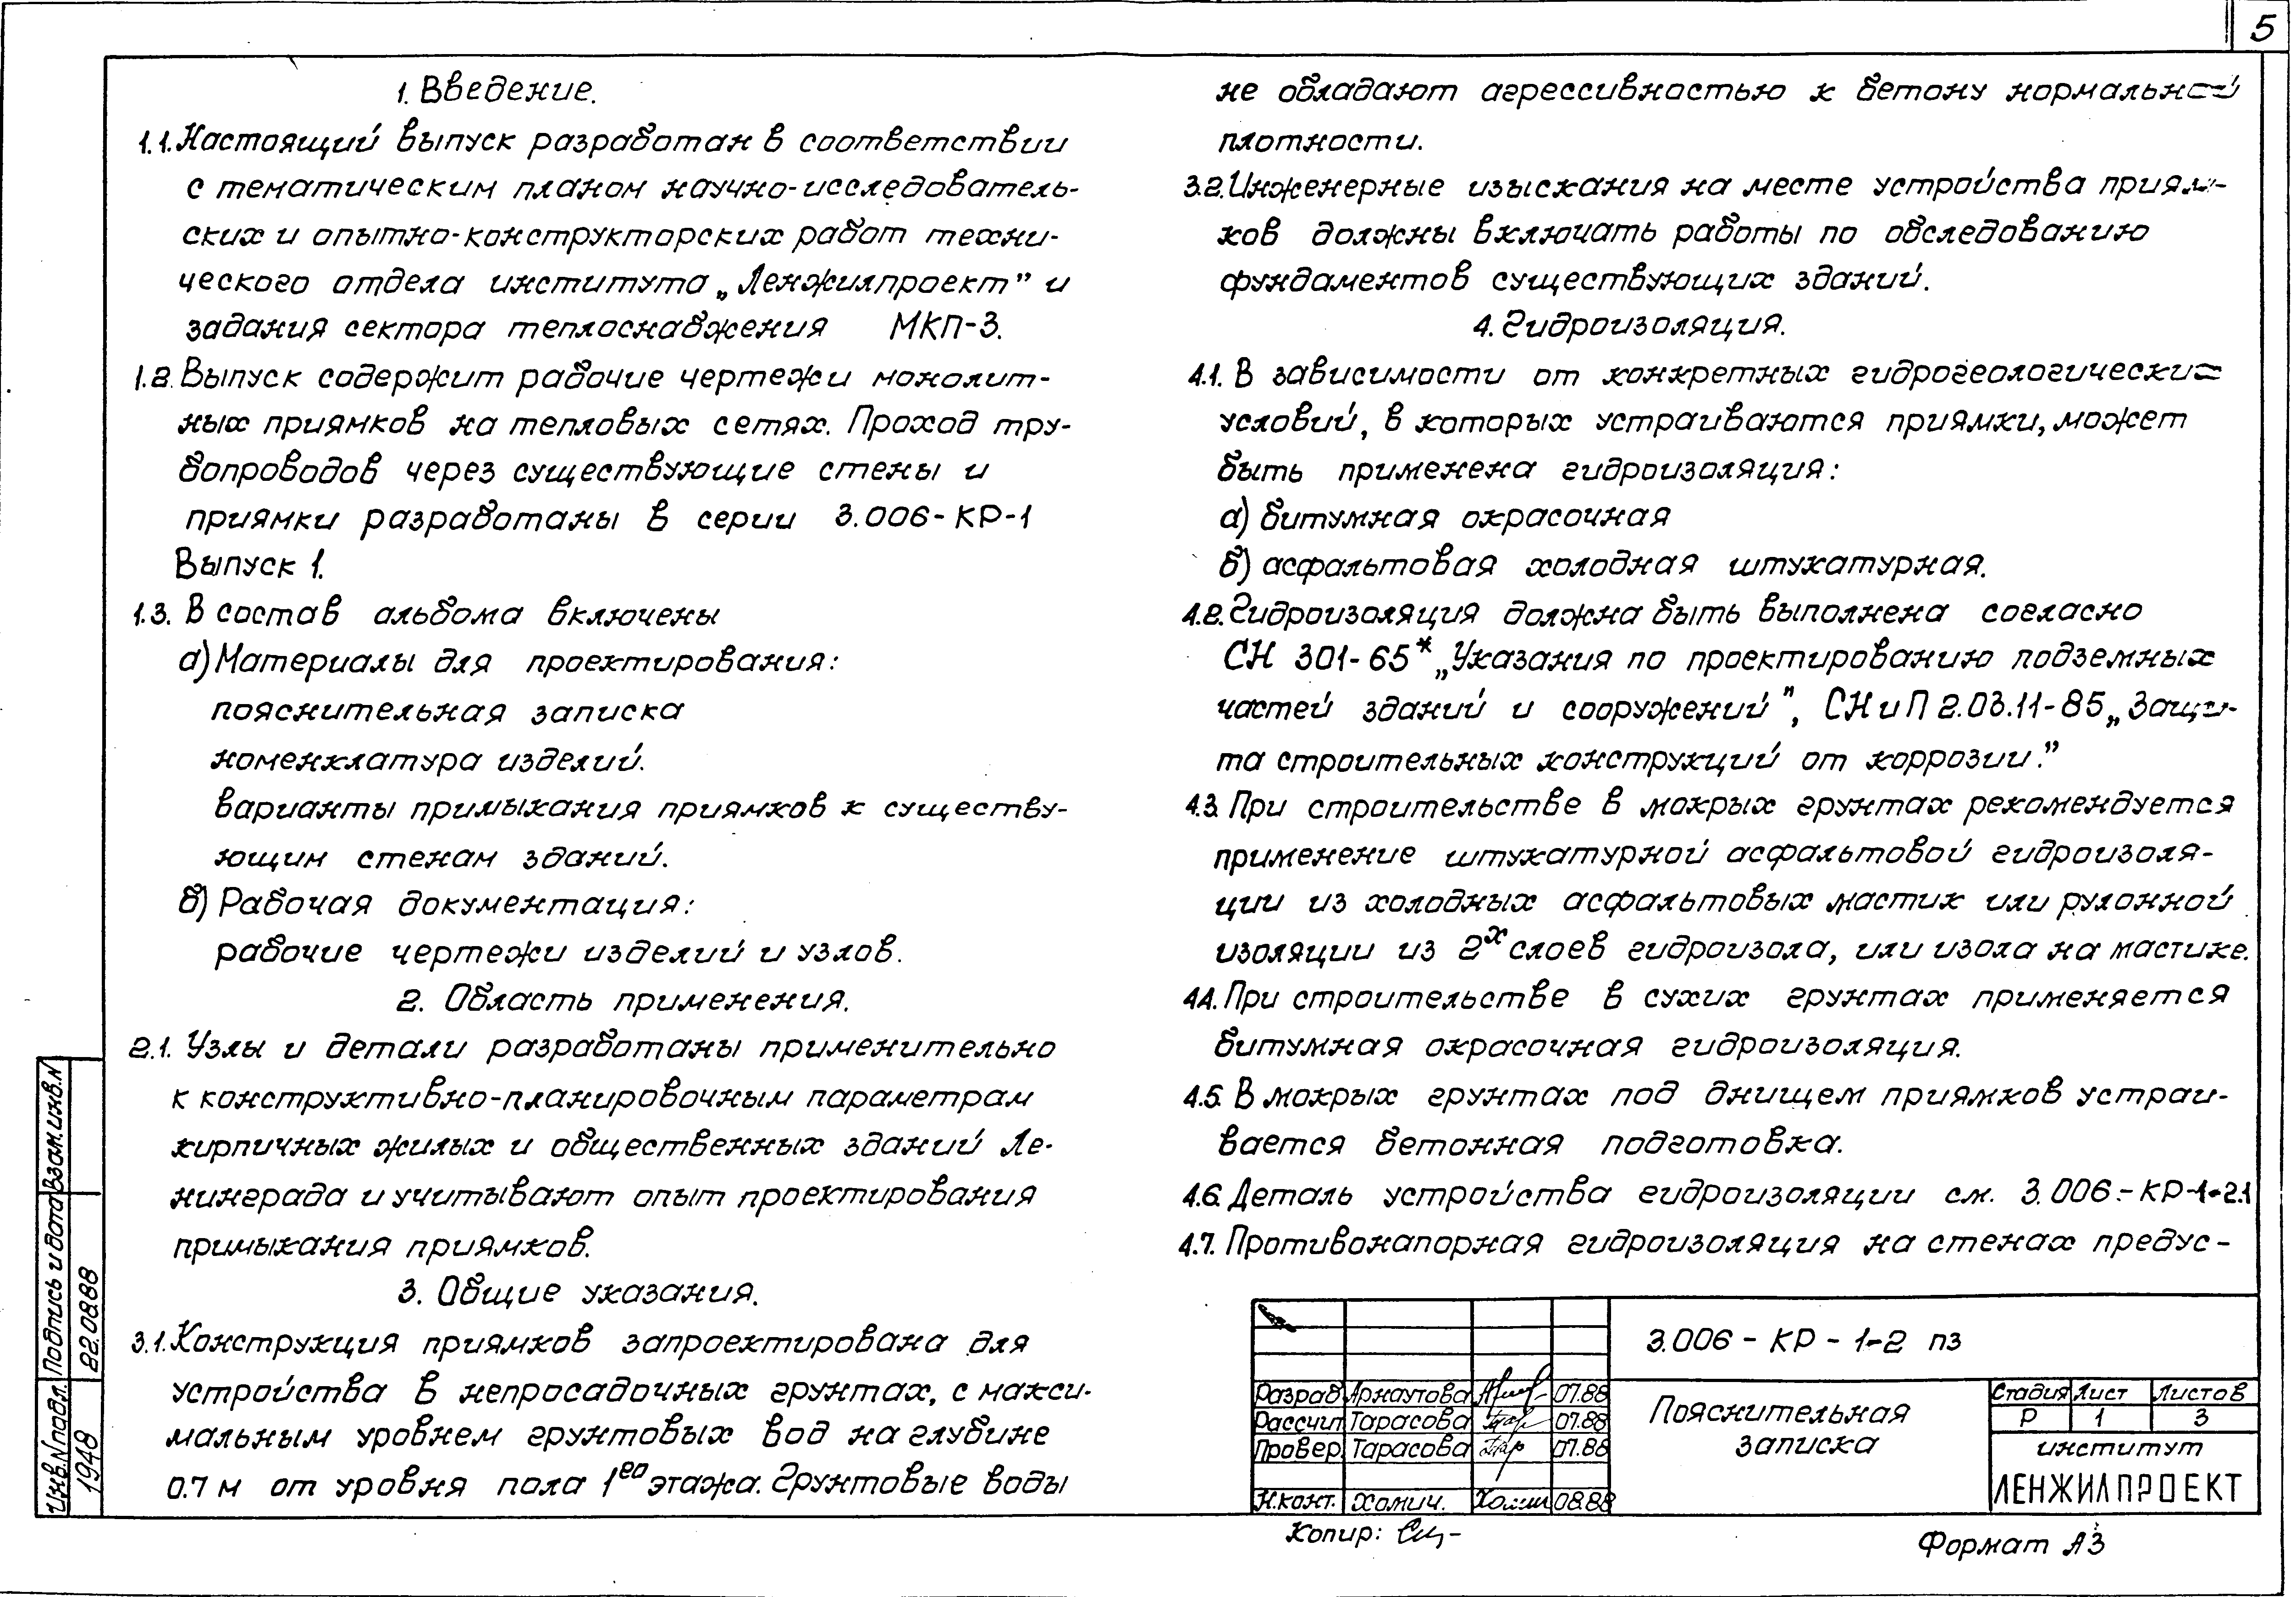 5
1. Введение.
1.1. Настоящий выпуск разработан в соответствии
с тематическим планом научно-исследователь-
ских и опытно-конструкторских работ техни-
ческого отдела института „Ленжилпроект” и
задания сектора теплоснабжения МКП-3.
1.2. Выпуск содержит рабочие чертежи монолит-
ных приямков на тепловых сетях. Проход тру-
бопроводов через существующие стены и
приямки разработаны в серии 3.006-КР-1
Выпуск 1.
1.3. В состав альбома включены
а) Материалы для проектирования:
пояснительная записка
номенклатура изделий.
варианты примыкания приямков к существу-
ющим стенам зданий.
б) Рабочая документация:
рабочие чертежи изделий и узлов.
2. Область применения.
2.1. Узлы и детали разработаны применительно
к конструктивно-планировочным параметрам
кирпичных жилых и общественных зданий Ле-
нинграда и учитывают опыт проектирования
примыкания приямков.
3. Общие указания.
3.1. Конструкция приямков запроектирована для
устройства в непросадочных грунтах, с макси-
мальным уровнем грунтовых вод на глубине
0.7 м от уровня пола 1го этажа. Грунтовые воды
не обладают агрессивностью к бетону нормальной
плотности.
3.2. Инженерные изыскания на месте устройства приям-
ков должны включать работы по обследованию
фундаментов существующих зданий.
4. Гидроизоляция.
4.1. В зависимости от конкретных гидрогеологических
условий, в которых устраиваются приямки, может
быть применена гидроизоляция:
а) битумная окрасочная
б) асфальтовая холодная штукатурная.
4.2. Гидроизоляция должна быть выполнена согласно
СН 301-65* „Указания по проектированию подземных
частей зданий и сооружений”, СНиП 2.03.11-85 „Защи-
та строительных конструкций от коррозии.”
4.3. При строительстве в мокрых грунтах рекомендуется
применение штукатурной асфальтовой гидроизоля-
ции из холодных асфальтовых мастик или рулонной
изоляции из 2х слоев гидроизола, или изола на мастике.
4.4. При строительстве в сухих грунтах применяется
битумная окрасочная гидроизоляция.
4.5. В мокрых грунтах под днищем приямков устраи-
вается бетонная подготовка.
4.6. Деталь устройства гидроизоляции см. 3.006-КР-1-2.1
4.7. Противонапорная гидроизоляция на стенах предус-
3.006 - КР - 1-2 пз
Разраб. Арнаутова 07.88
Рассчит. Тарасова 07.88
Провер. Тарасова 07.88
Н.конт. Хомич. 08.88
Пояснительная
записка
Стадия Лист Листов
Р 1 3
институт
ЛЕНЖИЛПРОЕКТ
Копир:
Формат А3
Инв.N подл. Подпись и дата Взам.инв.N
1948 22.08.88